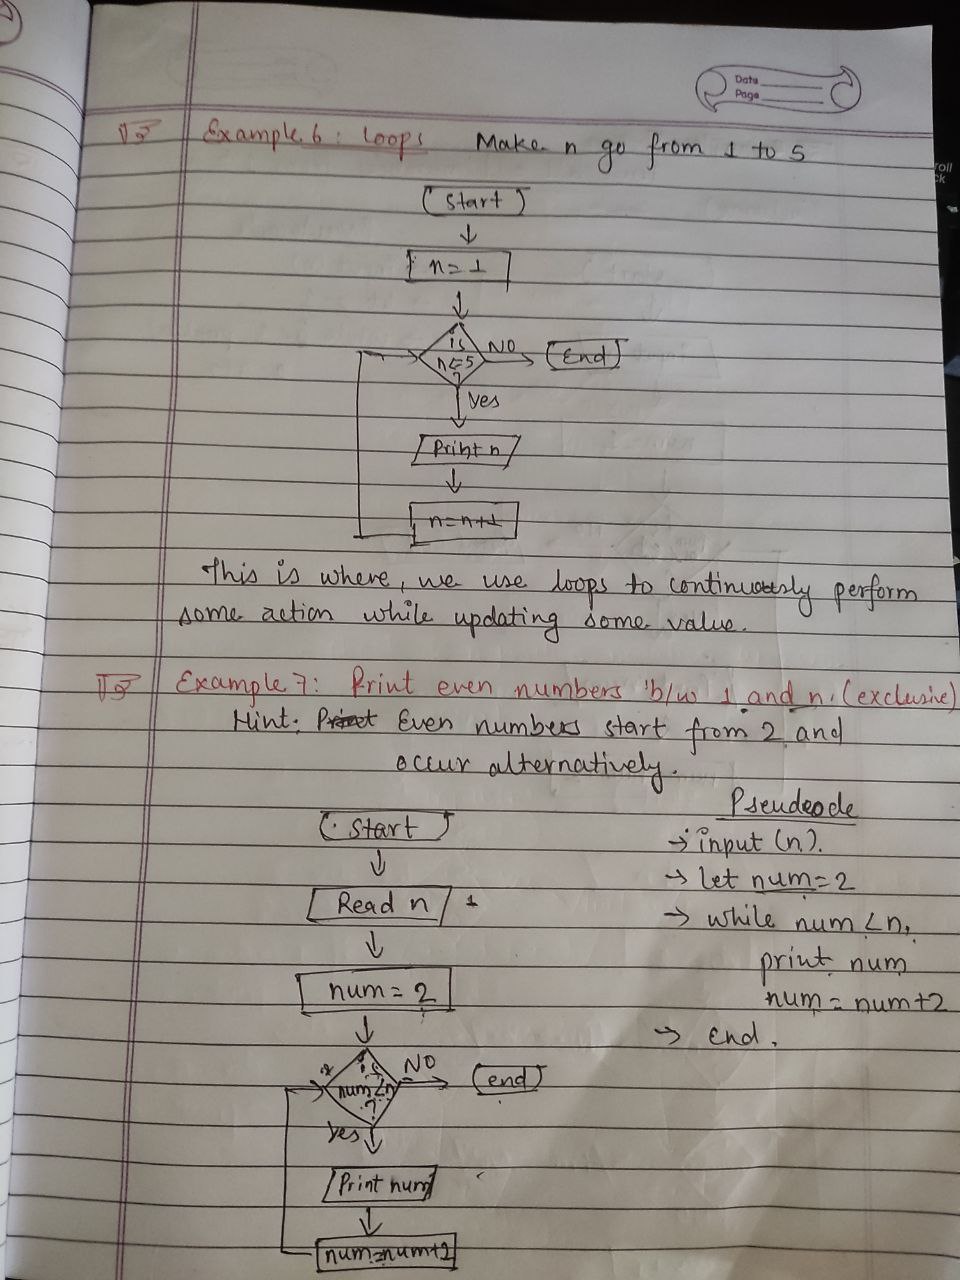 Date
Page
Example 6: loops Make n go from 1 to 5
Start
n=1
is
n<=5
?
NO
End
Yes
Print n
n=n+1
This is where, we use loops to continuously perform
some action while updating some value.
Example 7: Print even numbers b/w 1 and n. (exclusive)
Hint: Even numbers start from 2 and
occur alternatively.
Start
Read n
num = 2
is
num<n
?
NO
end
Yes
Print num
num=num+2
Pseudeode
→ input (n).
→ let num=2
→ while num <n,
print num
num = num+2
→ end.